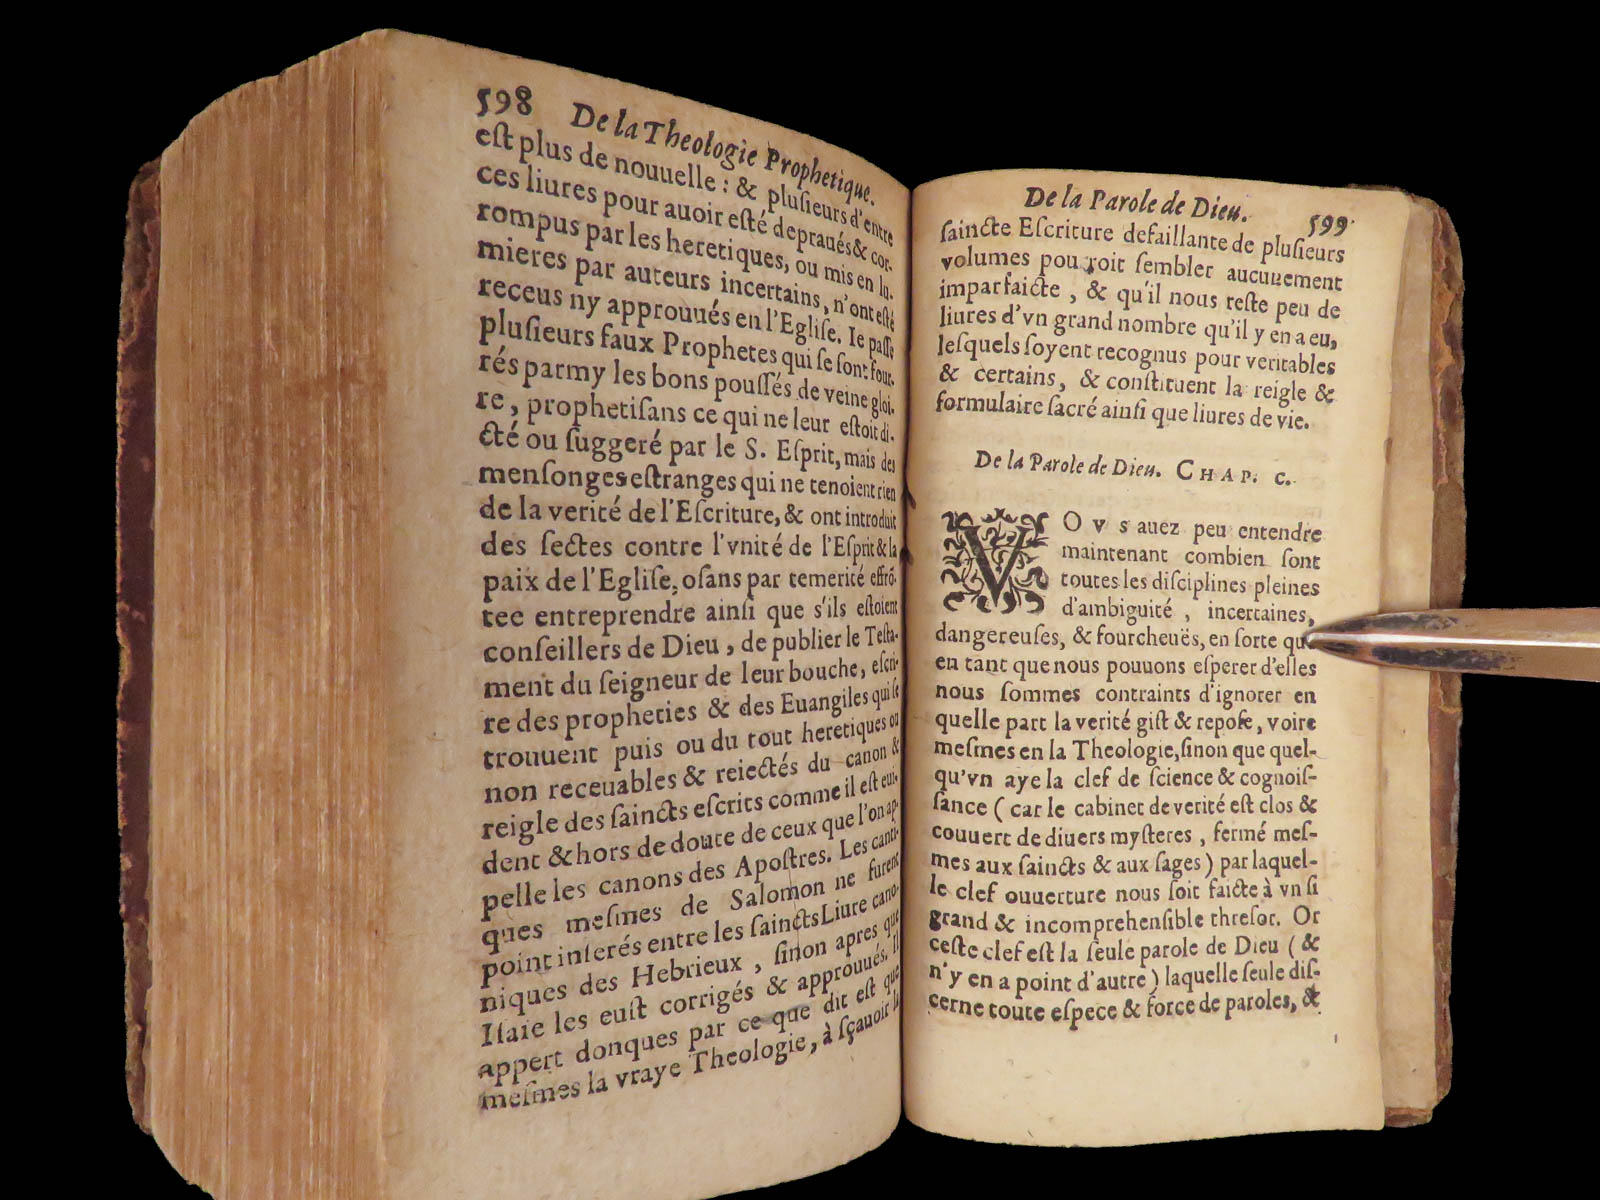 598 De la Theologie Prophetique.
eſt plus de nouuelle : & pluſieurs d'entre
ces liures pour auoir eſté depraués & cor-
rompus par les heretiques, ou mis en lu-
mieres par auteurs incertains, n'ont eſté
receus ny approuués en l'Egliſe. Ie paſſe
pluſieurs faux Prophetes qui ſe ſont four-
rés parmy les bons pouſſés de veine gloi-
re, prophetiſans ce qui ne leur eſtoit di-
cté ou ſuggeré par le S. Eſprit, mais des
menſonges eſtranges qui ne tenoient rien
de la verité de l'Eſcriture, & ont introduit
des ſectes contre l'vnité de l'Eſprit & la
paix de l'Egliſe, oſans par temerité effrõ-
tee entreprendre ainſi que s'ils eſtoient
conſeillers de Dieu, de publier le Teſta-
ment du ſeigneur de leur bouche, eſcri-
re des propheties & des Euangiles qui ſe
trouuent puis ou du tout heretiques ou
non receuables & reiectés du canon &
reigle des ſaincts eſcrits comme il est eui-
dent & hors de doute de ceux que l'on ap-
pelle les canons des Apoſtres. Les canti-
ques meſmes de Salomon ne furent
point inſerés entre les ſaincts Liure cano-
niques des Hebrieux, ſinon apres que
Iſaie les euſt corrigés & approuués. Il
appert donques par ce que dit est que
meſmes la vraye Theologie, à ſçauoir la
De la Parole de Dieu. 599
ſaincte Eſcriture defaillante de pluſieurs
volumes pourroit ſembler aucunement
imparfaicte, & qu'il nous reſte peu de
liures d'vn grand nombre qu'il y en a eu,
leſquels ſoyent recognus pour veritables
& certains, & conſtituent la reigle &
formulaire ſacré ainſi que liures de vie.
De la Parole de Dieu. CHAP. C.
VOVS auez peu entendre
maintenant combien ſont
toutes les diſciplines pleines
d'ambiguité, incertaines,
dangereuſes, & fourcheuës, en ſorte que
en tant que nous pouuons eſperer d'elles
nous ſommes contraints d'ignorer en
quelle part la verité giſt & repoſe, voire
meſmes en la Theologie, ſinon que quel-
qu'vn aye la clef de ſcience & cognoiſ-
ſance (car le cabinet de verité eſt clos &
couuert de diuers myſteres, fermé meſ-
mes aux ſaincts & aux ſages) par laquel-
le clef ouuerture nous ſoit faicte à vn ſi
grand & incomprehenſible threſor. Or
ceſte clef eſt la ſeule parole de Dieu (&
n'y en a point d'autre) laquelle ſeule diſ-
cerne toute eſpece & force de paroles, &